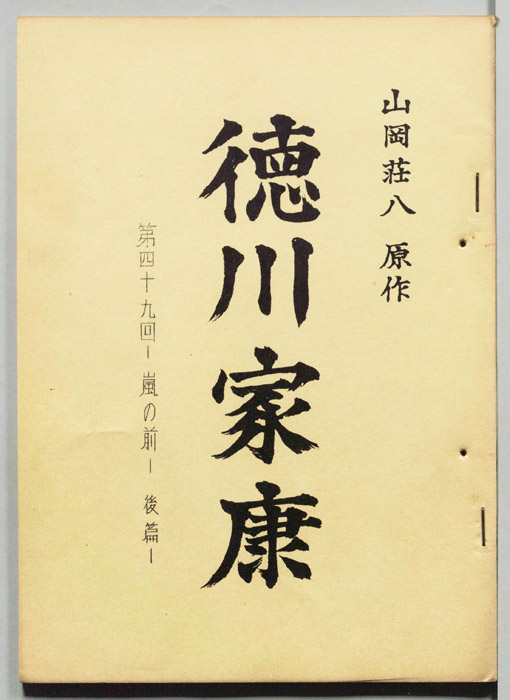 山岡荘八 原作
徳川家康
第四十九回ー嵐の前ー後篇ー